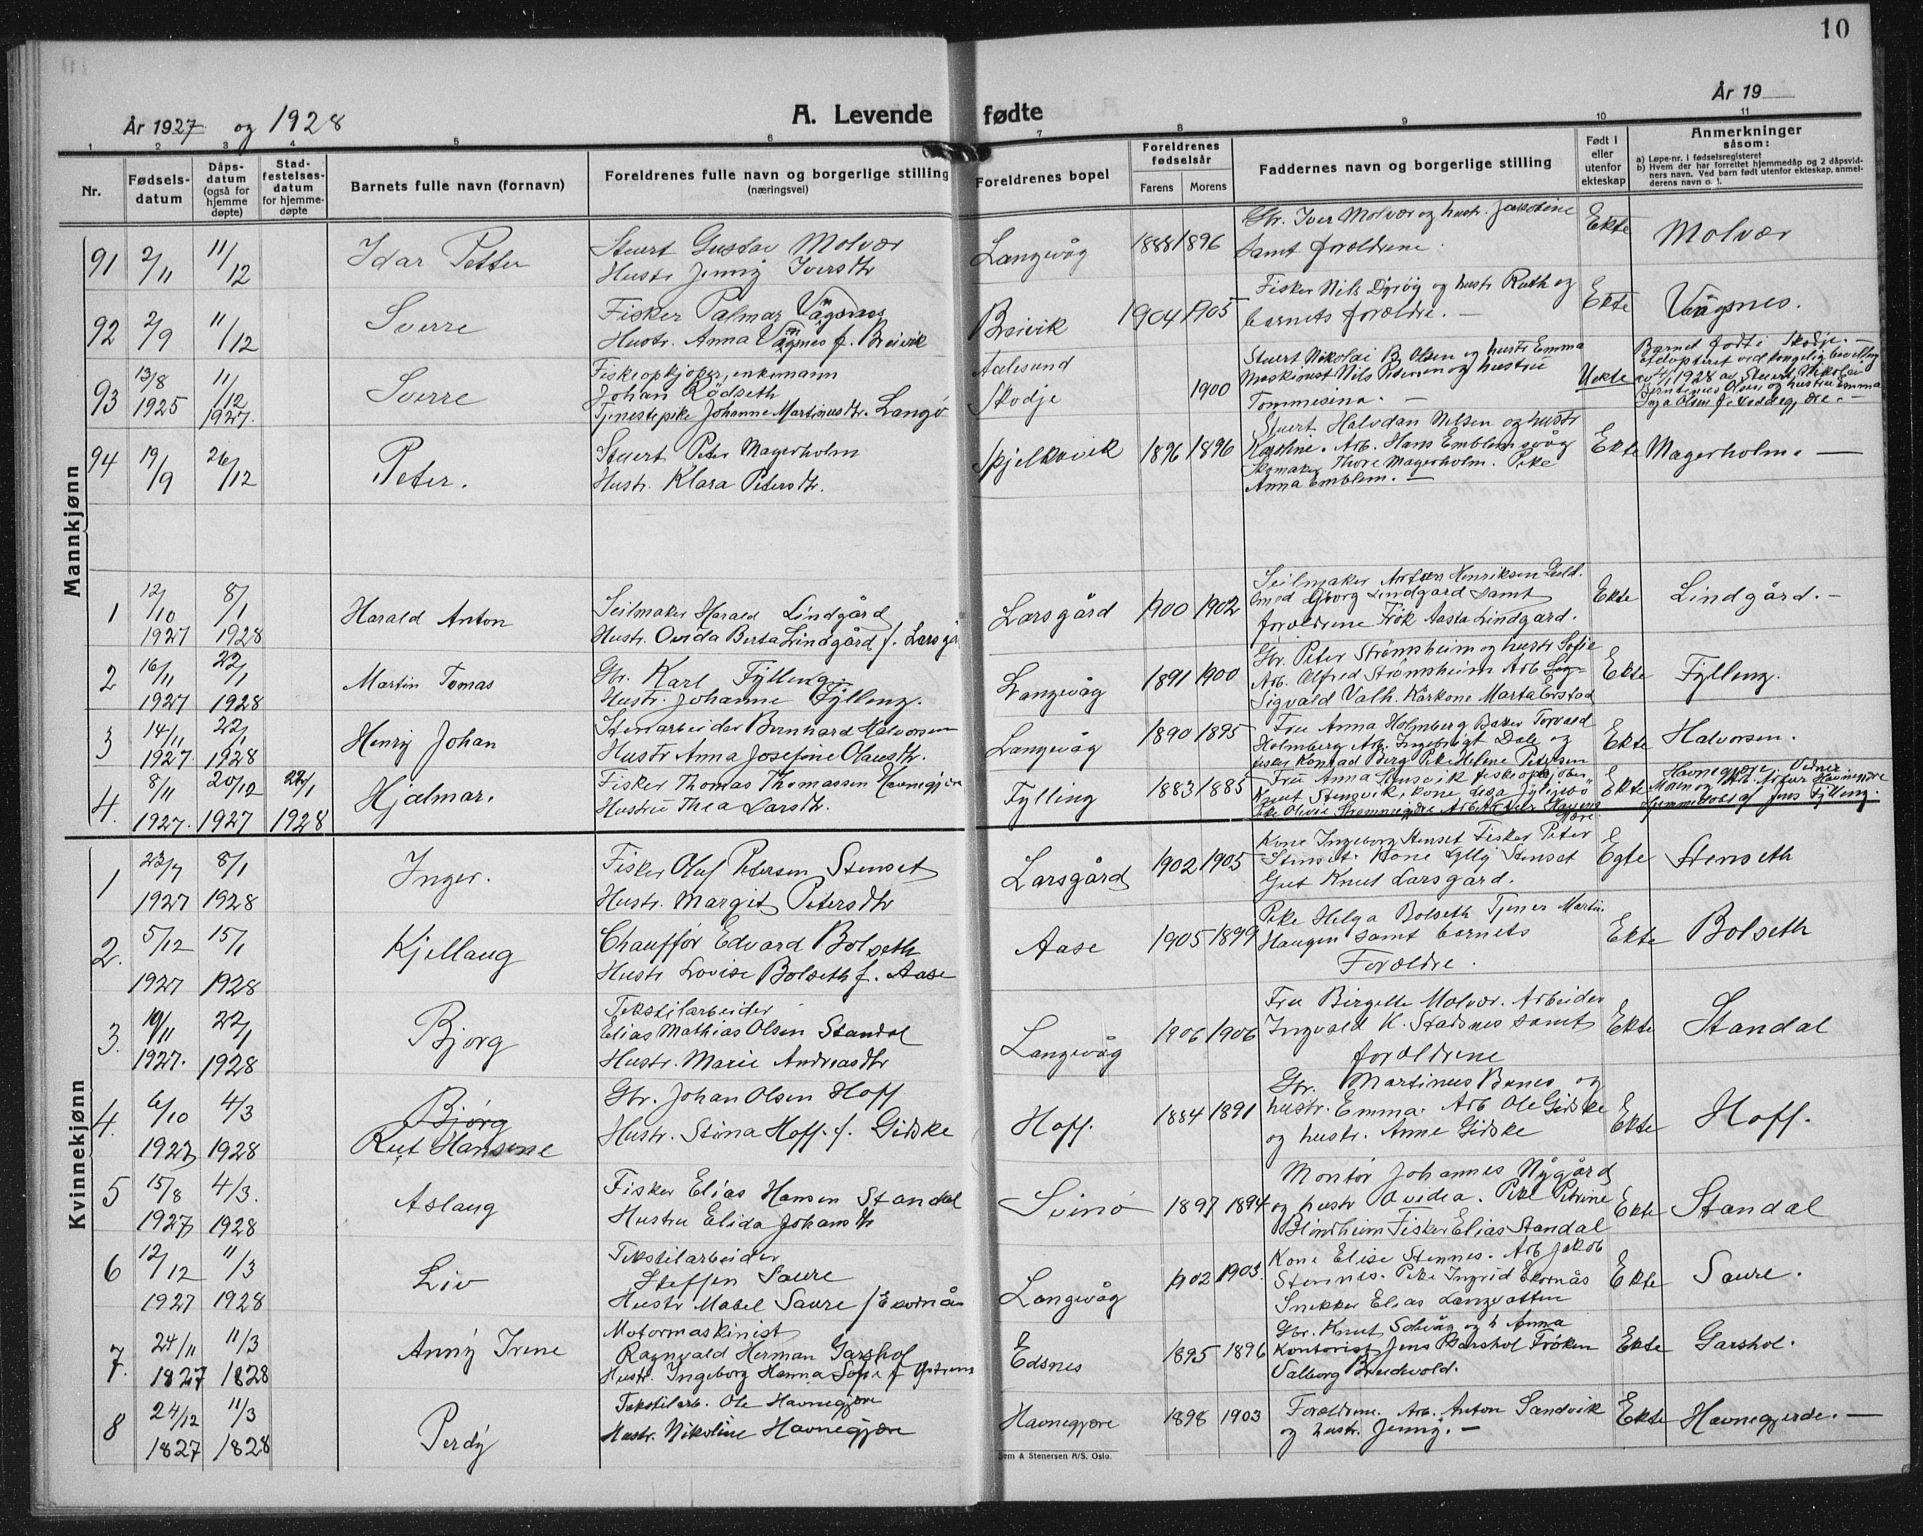 10
År 1927 og 1928
A. Levende fødte
År 19
1 2 3 4 5 6 7 8 9 10 11
Nr.
Fødsels-
datum
Dåps-
datum
(også for
hjemme
døpte)
Stad-
festelses-
datum
for hjemme-
døpte
Barnets fulle navn (fornavn)
Foreldrenes fulle navn og borgerlige stilling
(næringsvei)
Foreldrenes bopel
Foreldrenes
fødselsår
Farens Morens
Faddernes navn og borgerlige stilling
Født i
eller
utenfor
ekteskap
Anmerkninger
såsom:
a) Løpe-nr. i fødselsregisteret
b) Hvem der har forrettet hjemmedåp og 2 dåpsvid-
ners navn. Ved barn født utenfor ekteskap, anmel-
derens navn o. l.
Mannkjønn
91 2/11 11/12 Idar Petter
Stuert Gustav Molvær
Hustr Jenny Iversdtr
Langevåg 1888 1896
Gbr. Iver Molvær og hustr. Jakobine
samt forældrene.
Ekte Molvær
92 2/9 11/12 Sverre
Fisker Palmar Vågsnes
Hustr. Anna Vågnes f. Breivik
Breivik 1904 1905
Fisker Nils Dyrøy og hustr Ruth og
barnets forældre. —
Ekte Vågsnes.
93 13/8 1925 11/12 1927. Sverre
Fiskeopkjøper, enkemann
Johan Rødseth
Tjenestepike Johanne Martinusdtr. Langø
Aalesund
Skodje 1900
Stuert Nikolai B. Olsen og hustr Emma
Maskinist Nils Petersen og hustru
Tommesina. —
Uekte
Barnet født i Skodje. —
Adopteret ved kongelig bevilling
av 4/1 1928 av Stuert Nikolai
Berntinus Olsen og hustru Emma
Inga Olsen f.
94 19/9 26/12 Peter.
Stuert Peter Magerholm
Hustr. Klara Petersdtr.
Spjelkavik 1896 1896
Stuert Halvdan Nilsen og hustr
Karoline. Arb. Hans Emblemsvåg
Skomaker Thore Magerholm. Pike
Anna Emblem. —
Ekte Magerholm. —
1 12/10 1927 8/1 1928 Harald Anton
Seilmaker Harald Lindgård
Hustr. Ovida Berta Lindgård f. Larsgå
Larsgård 1900 1902
Seilmaker Anton Henriksen
med Lindgård samt
forældrene Frøk Aasta Lindgard.
Ekte Lindgård. —
2 16/11 1927 22/1 1928 Martin Tomas
Gbr. Karl Fylling
Hustr. Johanne Fylling.
Langevåg 1891 1900
Gbr. Peter Strømsheim og hustr Sofie
Arb. Alfred Strømsheim Arb
Sigvald Valh. Kårkone Marta Erstad
Ekte Fylling.
3 14/11 1927. 22/1 1928 Henry Johan
Stenarbeider Bernhard Halvorsen
Hustr Anna Josefine Olausdtr.
Langevåg 1890 1895
Fru Anna Holmberg Baker Torvald
Holmberg Arb. Ingebrigt Dale og
fisker Konrad Berg Pike Helene Petersen
Ekte Halvorsen.
4. 8/11 1927. 20/12 1927 22/1 1928 Hjalmar.
Fisker Thomas Thomassen Havnegjære
Hustru Thea Larsdtr.
Fylling 1883 1885
Fru Anna Stensvik
Knut Stensvik, kone
Pike Olivie Arb Artur Havne
gjære
Ekte Havnegjære.
Arb. Artur Havnegjære
Hjemmedøbt af Jens Fylling.
Kvinnekjønn
1 23/7 1927 8/1 1928 Inger.
Fisker Oluf Petersen Stenset
Hustr. Margit Petersdtr
Larsgård 1902 1905
Kone Ingeborg Stenset Fisker Peter
Stenset. Kone Lylly Stenset
Gut Knut Larsgård.
Egte Stenseth
2. 5/12 1927 15/1 1928 Kjellaug
Chauffør Edvard Bolseth
Hustr Lovise Bolseth f. Aase
Aase 1905 1899
Pike Helga Bolseth Tjener Martin
Haugen samt barnets
Forældre.
Ekte Bolseth
3. 19/11 1927. 22/1 1928 Bjørg
Tekstilarbeider
Elias Mathias Olsen Standal
Hustr. Marie Andreasdtr
Langevåg 1906 1906
Fru Birgette Molvær. Arbeider
Ingvald K. Stadsnes samt
forældrene
Ekte Standal
4. 6/10 1927 4/3 1928 Bjørg
Rut Hansine
Gbr. Johan Olsen Hoff
Hustr. Stina Hoff. f. Gidske
Hoff. 1884 1891
Gbr. Martinus Banes og
hustr. Emma. Arb Ole Gidske
og hustr. Anne Gidske
Ekte Hoff.
5 15/8 1927 4/3. 1928 Aslaug
Fisker Elias Hansen Standal
Hustru Elida Johansdtr
Svinø 1897 1894
Montør Johannes Nygård
og hustr Ovidea. Pike Petrine
Blindheim Fisker Elias Standal
Ekte Standal
6 12/12 1927 11/3 1928 Liv
Tekstilarbeider
Steffen Saure
Hustr Mabel Saure f Ekornås
Langevåg 1902 1903.
Kone Elise Stennes. Arb Jakob
Stennes. Pike Ingrid Ekornås
Snekker Elias Langvatten
Ekte Saure.
7. 24/11 1827 11/3 1828 Anny Irene
Motormaskinist
Ragnvald Herman Garshol
Hustr. Ingeborg Hanna Sofie f
Edsnes 1895 1896
Gbr. Knut Solvåg og h Anna
Kontorist Jens Garshol Frøken
Valborg Breidvold.
Ekte Garshol.
8 24/12 1827 11/3 1828 Perdy
Tekstilarb. Ole Havnegjære
Hustr. Nikoline Havnegjære
Havnegjære 1898 1903
Forældrene. Arb. Anton Sandvik
og hustr. Jenny. —
Ekte Havnegjerde. —
Sem & Stenersen A/S. Oslo.